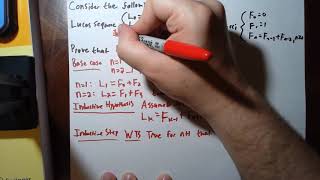 Consider the follow
Lucas Sequence { L₀ =
F₀=0
F₁=1
Fₙ=Fₙ₋₁+Fₙ₋₂, n≥2
Prove that
Base case n=1
n=2
n=1: L₁ = F₀ + F₂
n=2: L₂ = F₁ + F₃
Inductive Hypothesis Assume
Lₖ = Fₖ₋₁ +
Inductive Step WTS True for n+1 that